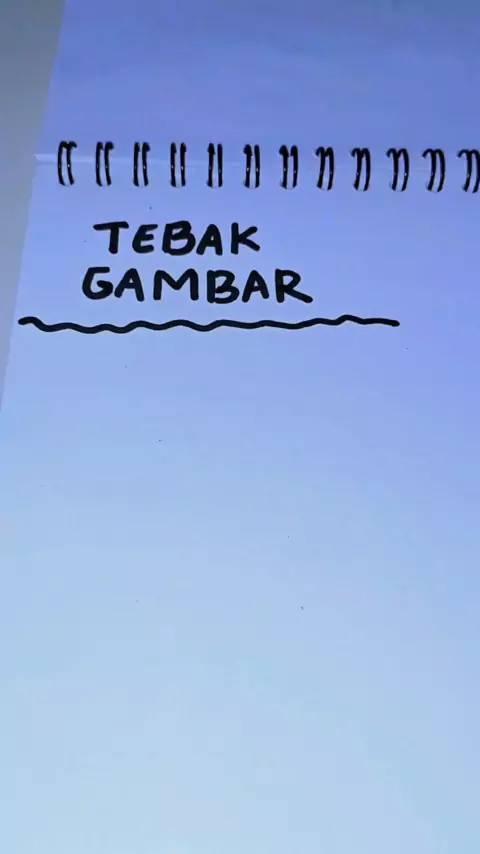 TEBAK
GAMBAR